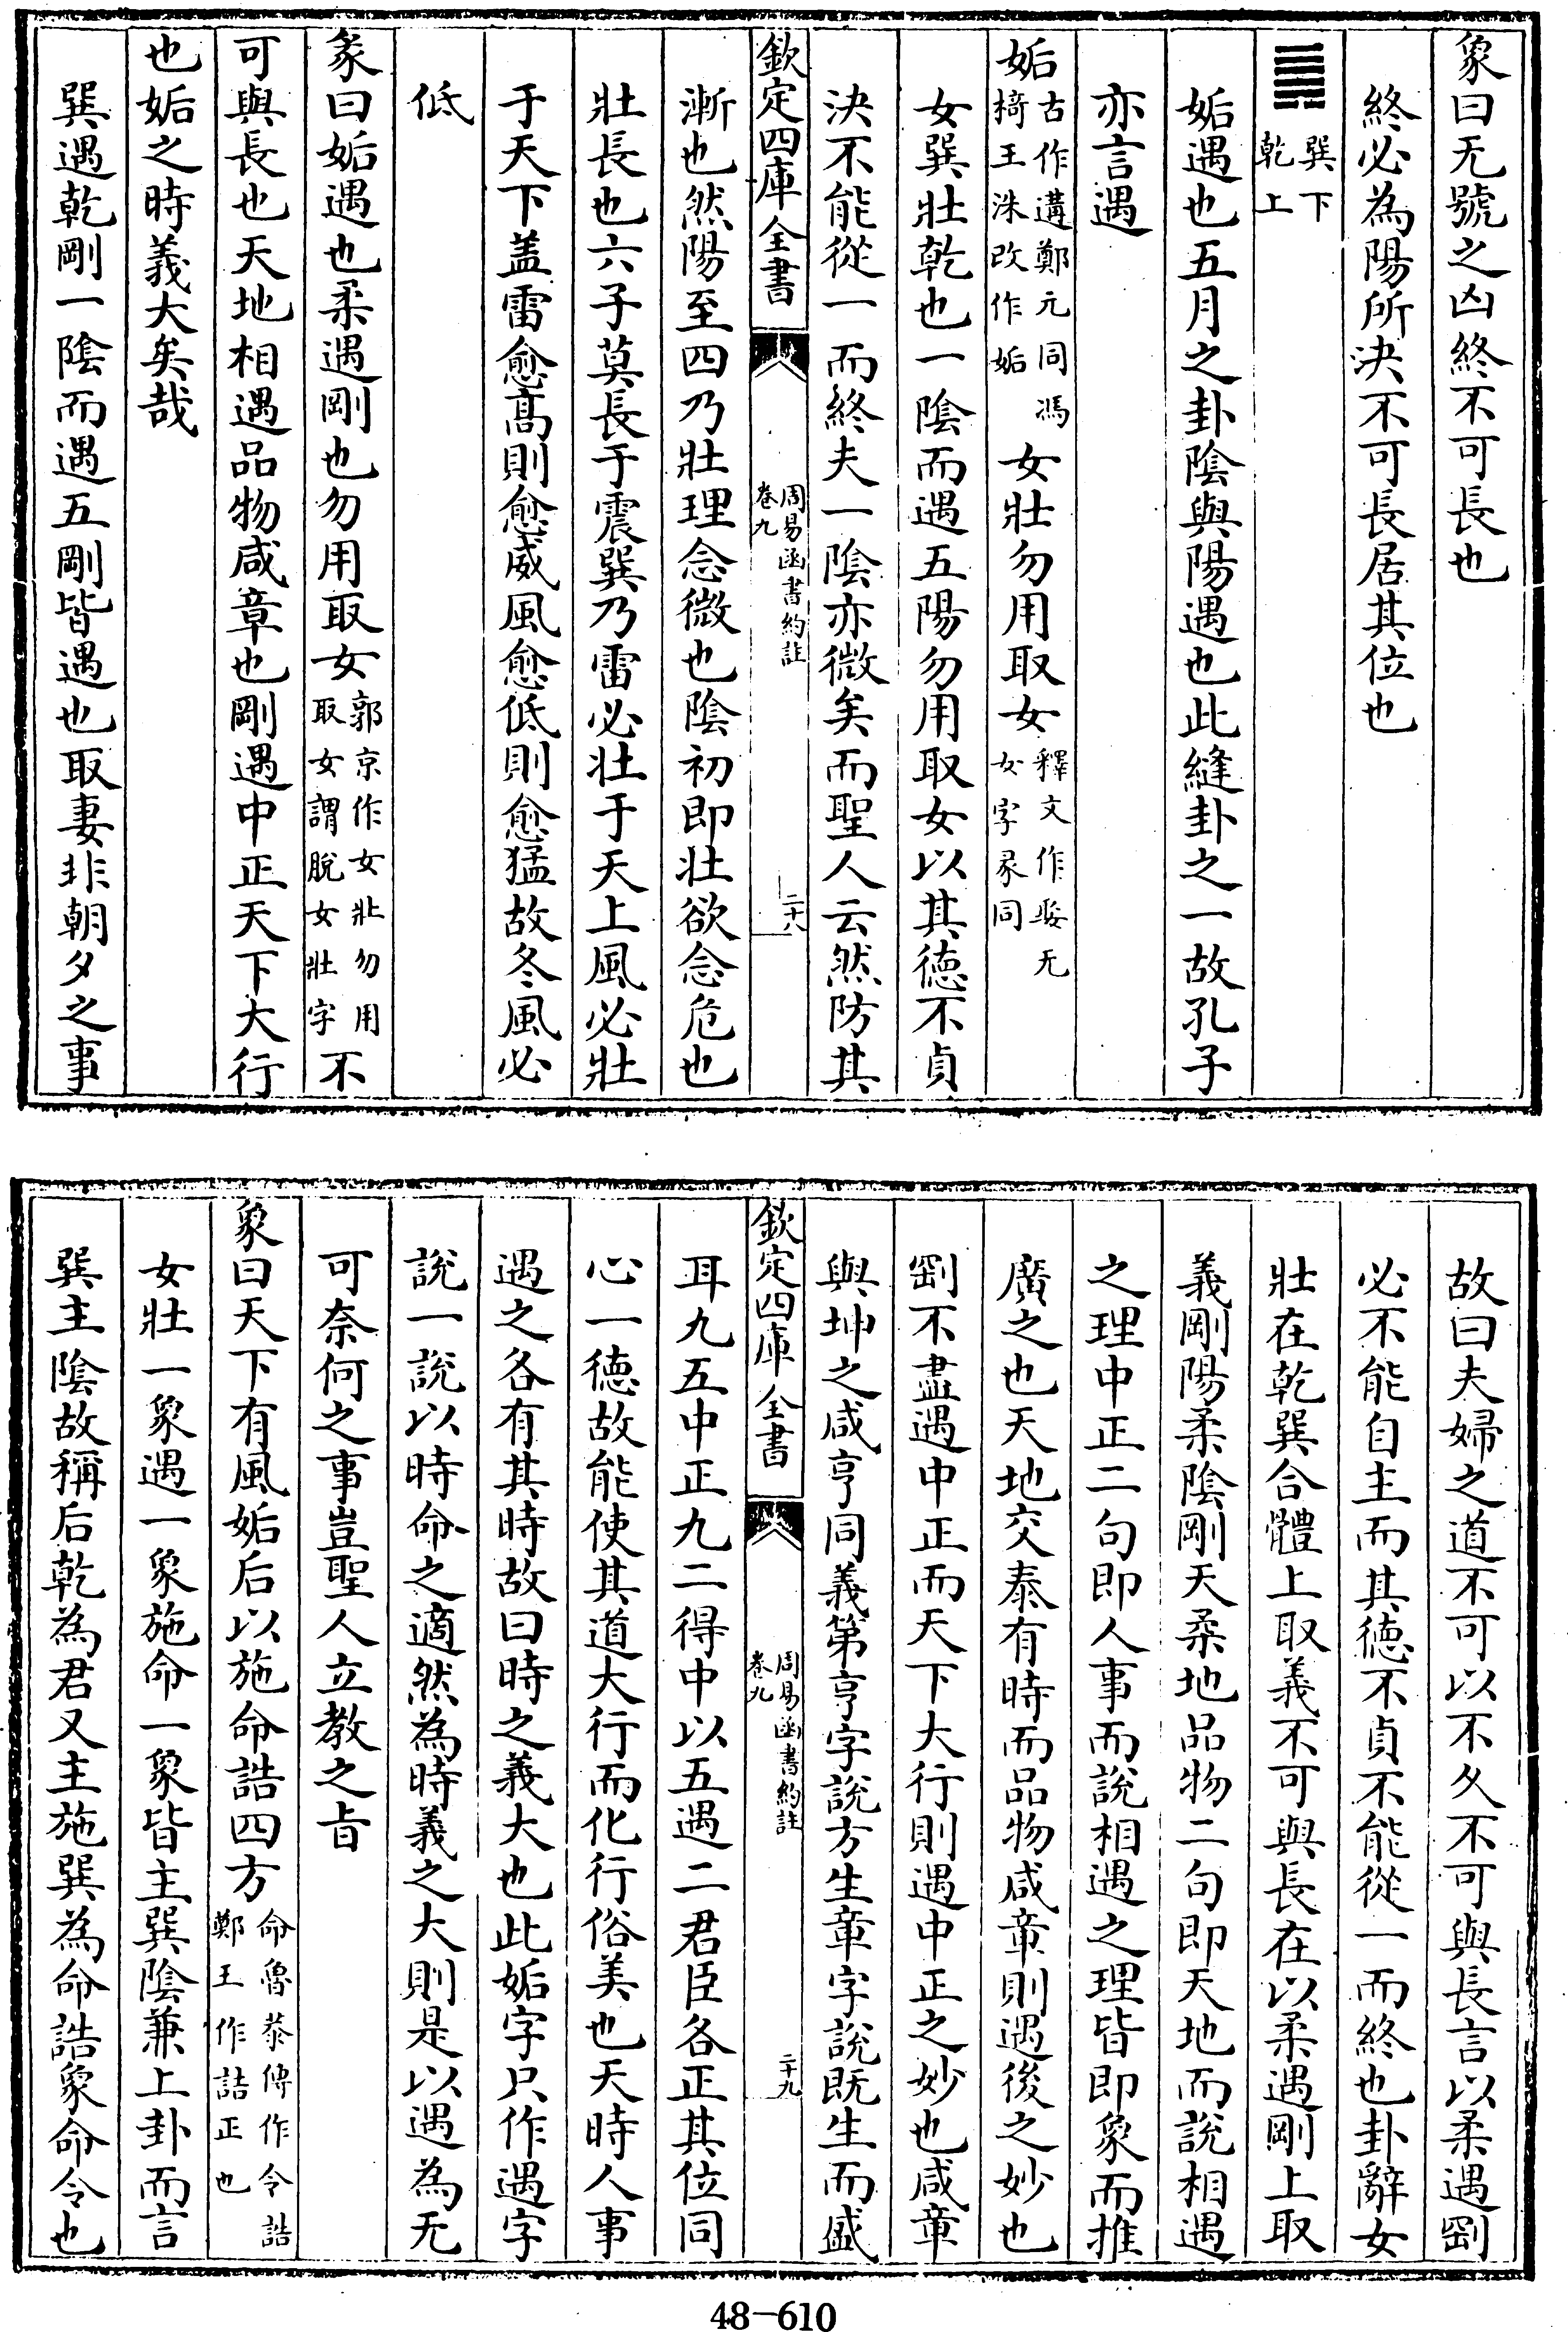 象曰无號之凶終不可長也
終必為陽所決不可長居其位也
䷫巽下乾上
姤遇也五月之卦陰與陽遇也此縫卦之一故孔子
亦言遇
姤古作遘鄭元同馮椅王洙改作姤女壯勿用取女釋文作娶无女字彖同
女巽壯乾也一陰而遇五陽勿用取女以其德不貞
決不能從一而終夫一陰亦微矣而聖人云然防其
欽定四庫全書
周易函書約註
卷九
二十八
漸也然陽至四乃壯理念微也陰初即壯欲念危也
壯長也六子莫長于震巽乃雷必壯于天上風必壯
于天下蓋雷愈高則愈威風愈低則愈猛故冬風必
低
彖曰姤遇也柔遇剛也勿用取女郭京作女壯勿用取女謂脫女壯字不
可與長也天地相遇品物咸章也剛遇中正天下大行
也姤之時義大矣哉
巽遇乾剛一陰而遇五剛皆遇也取妻非朝夕之事
故曰夫婦之道不可以不久不可與長言以柔遇剛
必不能自主而其德不貞不能從一而終也卦辭女
壯在乾巽合體上取義不可與長在以柔遇剛上取
義剛陽柔陰剛天柔地品物二句即天地而說相遇
之理中正二句即人事而說相遇之理皆即象而推
廣之也天地交泰有時而品物咸章則遇後之妙也
剛不盡遇中正而天下大行則遇中正之妙也咸章
與坤之咸亨同義第亨字說方生章字說既生而盛
欽定四庫全書
周易函書約註
卷九
二十九
耳九五中正九二得中以五遇二君臣各正其位同
心一德故能使其道大行而化行俗美也天時人事
遇之各有其時故曰時之義大也此姤字只作遇字
說一說以時命之適然為時義之大則是以遇為无
可奈何之事豈聖人立教之旨
象曰天下有風姤后以施命誥四方命魯恭傳作令誥鄭王作詰正也
女壯一象遇一象施命一象皆主巽陰兼上卦而言
巽主陰故稱后乾為君又主施巽為命誥象命令也
48-610